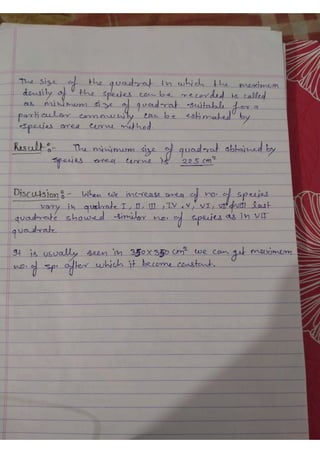 The size of the quadrat in which the maximum
density of the species can be recorded is called
as minimum size of quadrat suitable for a
particular community can be estimated by
species area curve method.
Result :- The minimum size of quadrat obtained by
species area curve is 205 cm²
Discussion :- When we increase area of no. of species
vary in quadrate I, II, III, IV, V, VI, VII last
quadrate showed similar no. of species as in VII
quadrate.
It is usually seen in 350x350 cm² we can get maximum
no. of sp. after which it become constant.